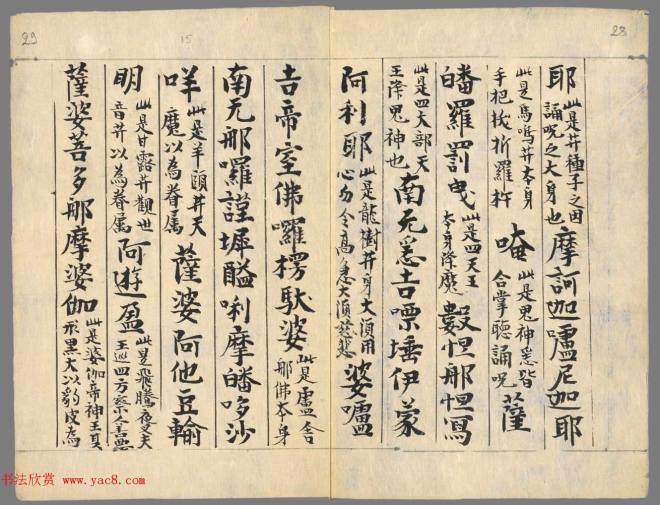 耶此是𦬇種子之因誦呪之大身也摩訶迦嚧尼迦耶
此是馬鳴𦬇本身手把拔折羅杵唵此是鬼神悉皆合掌聽誦呪薩
皤羅罰曳此是四天王本身降魔數怛那怛寫
此是四大部天王降鬼神也南无悉吉㗚埵伊蒙
阿利耶此是龍樹𦬇身大須用心勿令高急大須慈悲婆嚧
吉帝室佛囉楞馱婆此是盧舍那佛本身
南无那囉謹墀醯唎摩皤哆沙
咩此是羊頭𦬇天魔以為眷属薩婆阿他豆輸
明此是甘露𦬇觀世音𦬇以為眷属阿遊盈此是飛騰夜叉天王巡四方察人善惡
薩婆菩多那摩婆伽此是婆伽帝神王其形黑大以豹皮為
28
29
15
书法欣赏 www.yac8.com